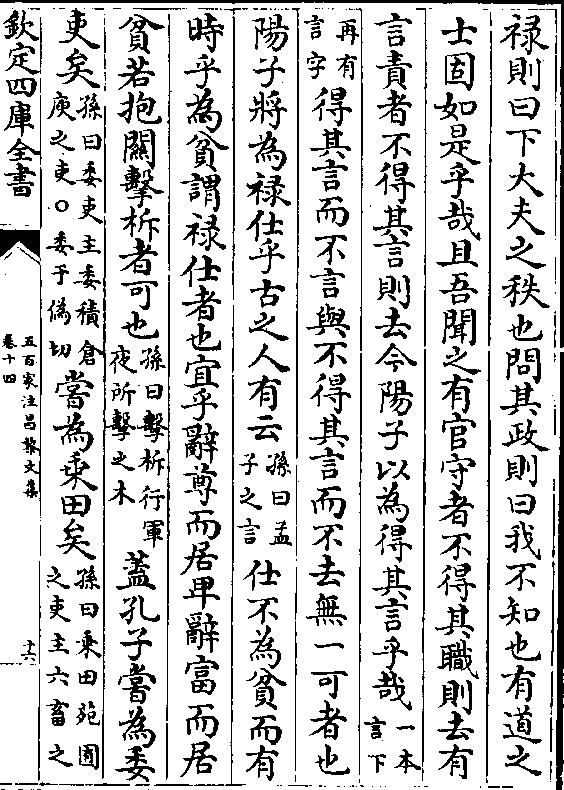 禄則曰下大夫之秩也問其政則曰我不知也有道之
士固如是乎哉且吾聞之有官守者不得其職則去有
言責者不得其言則去今陽子以為得其言乎哉一本言下
再有言字得其言而不言與不得其言而不去無一可者也
陽子將為禄仕乎古之人有云孫曰孟子之言仕不為貧而有
時乎為貧謂禄仕者也宜乎辭尊而居卑辭富而居
貧若抱關擊柝者可也孫曰擊柝行軍夜所擊之木蓋孔子嘗為委
吏矣孫曰委吏主委積倉庾之吏○委于偽切嘗為乘田矣孫曰乘田苑囿之吏主六畜之
欽定四庫全書
五百家注昌黎文集
卷十四
十六